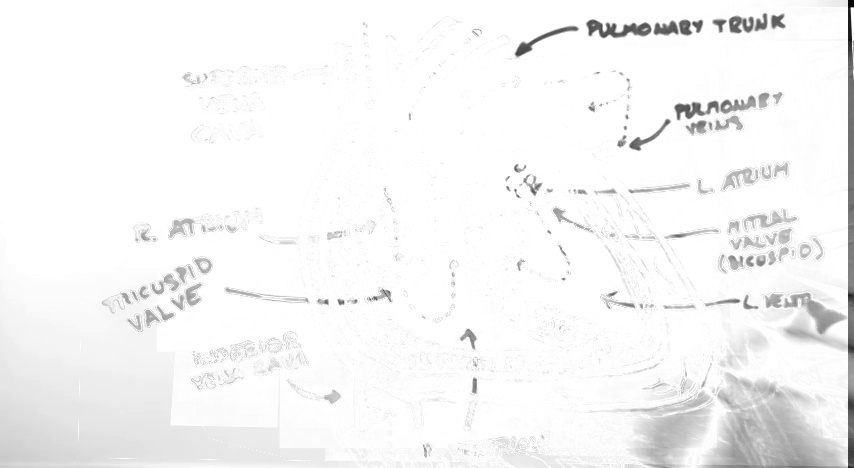 PULMONARY TRUNK
SUPERIOR
VENA
CAVA
PULMONARY
VEINS
L. ATRIUM
R. ATRIUM
MITRAL
VALVE
(BICUSPID)
TRICUSPID
VALVE
L. VENT
INFERIOR
VENA CAVA